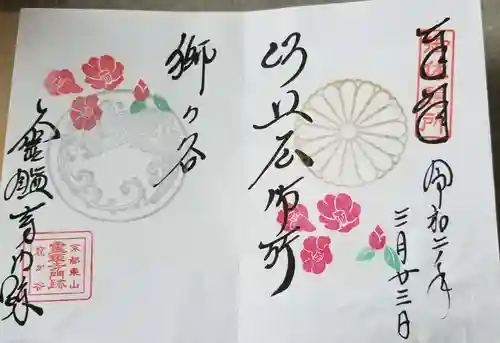 奉拝
令和二年
三月廿三日
比丘尼御所
獅ヶ谷
霊鑑寺門跡
京都東山
霊鑑寺門跡
鹿ヶ谷